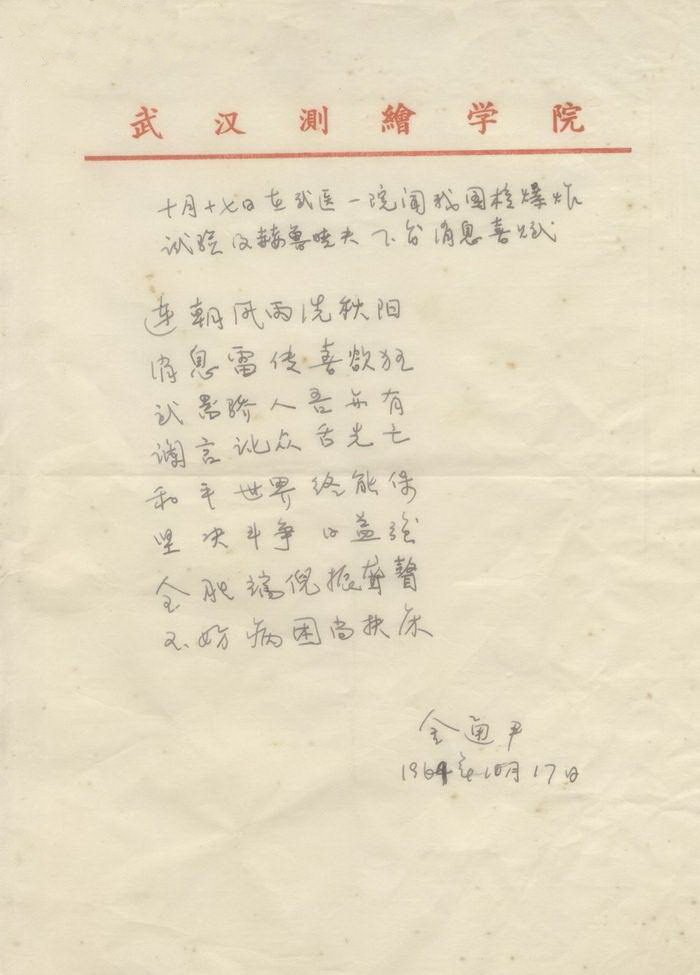 武汉测繪学院
十月十七日在武医一院闻我国核爆炸
试验及赫鲁晓夫下台消息喜赋
连朝风雨洗秋阳
消息雷传喜欲狂
武器骄人吾亦有
谰言讹众舌先亡
和平世界终能保
坚决斗争日益强
全肥端倪振聋瞽
不妨病困尚扶床
金通尹
1964年10月17日